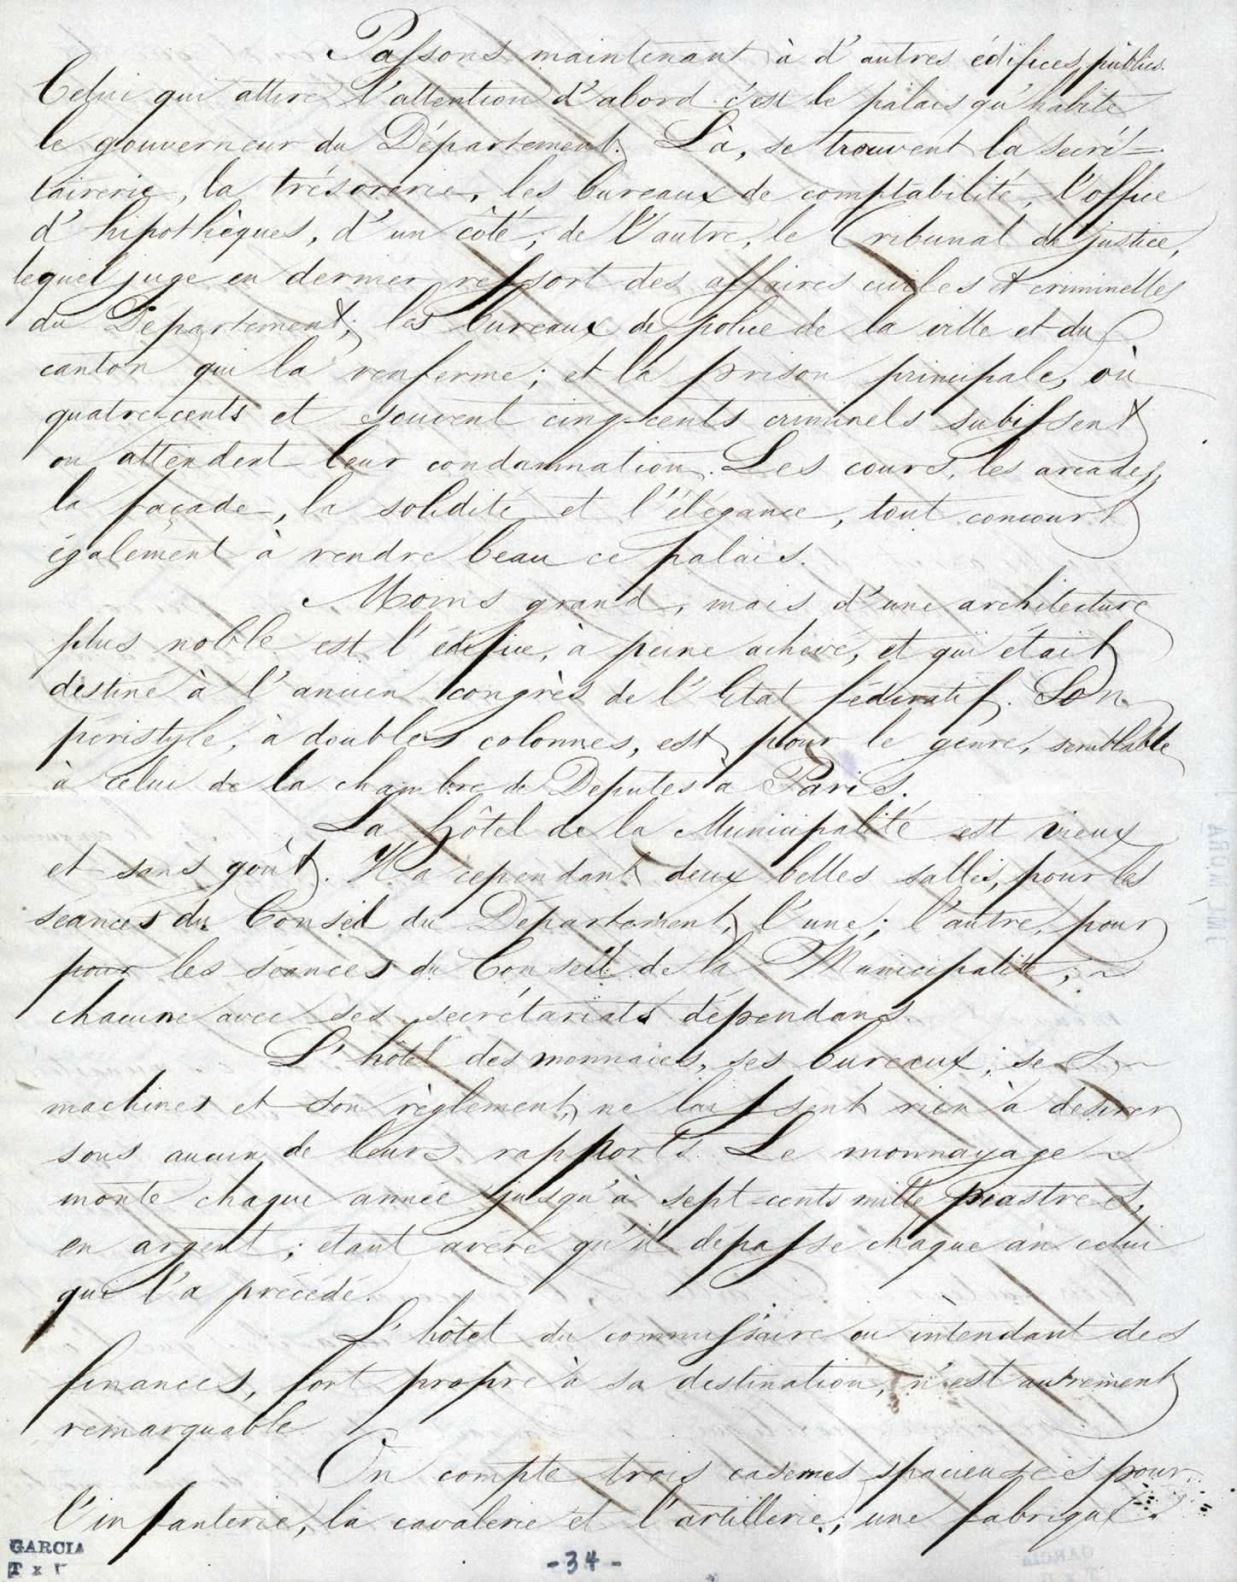 Passons maintenant à d'autres édifices publics.
Celui qui attire l'attention d'abord c'est le palais qu'habite
le gouverneur du Département. Là, se trouvent la secré=
tairerie, la trésorerie, les bureaux de comptabilité, l'office
d'hipothèques, d'un côté; de l'autre, le Tribunal de justice,
lequel juge en dernier ressort des affaires civiles et criminelles
du Département; les bureaux de police de la ville et du
canton qui la renferme; et la prison principale, où
quatre-cents et souvent cinq-cents criminels subissent
ou attendent leur condamnation. Les cours, les arcades,
la façade, la solidité et l'élégance, tout concourt
également à rendre beau ce palais.
Moins grand, mais d'une architecture
plus noble est l'édifice, à peine achevé, et qui était
destiné à l'ancien congrès de l'Etat féderatif. Son
péristyle, à doubles colonnes, est pour le genre, semblable
à celui de la chambre de Deputés à Paris.
La hôtel de la Municipalité est vieux
et sans goût. Il a cependant deux belles salles, pour les
séances du Conseil du Département, l'une; l'autre, pour
pour les séances du Conseil de la Municipalité,
chacune avec ses secrétariats dépendans.
L'hôtel des monnaies, ses bureaux; ses
machines et son règlement, ne laissent rien à desirer
sous aucun de leurs rapports. Le monnayage
monte chaque année jusqu'à sept-cents mille piastres,
en argent; étant avéré qu'il dépasse chaque an celui
qui l'a précédé.
L'hôtel du commissaire ou intendant des
finances, fort propre à sa destination, n'est autrement
remarquable
On compte trois casernes spacieuses pour
l'infanterie, la cavalerie et l'artillerie; une fabrique
GARCIA
-34-